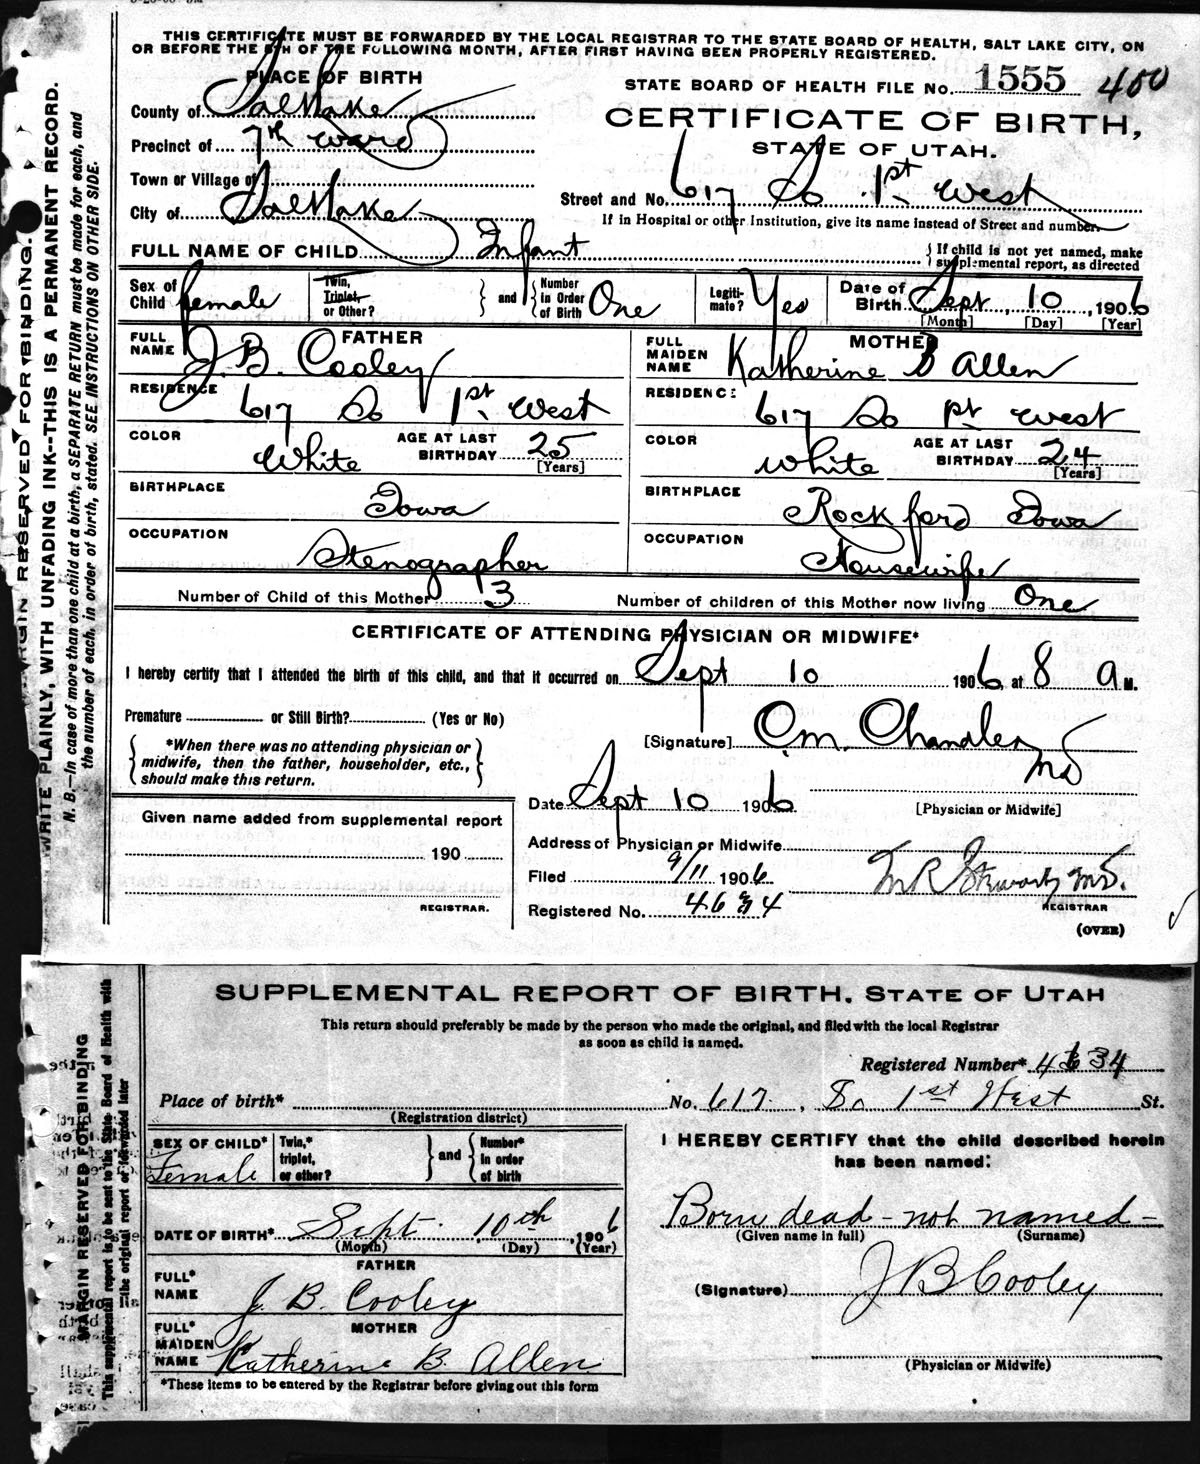 THIS CERTIFICATE MUST BE FORWARDED BY THE LOCAL REGISTRAR TO THE STATE BOARD OF HEALTH, SALT LAKE CITY, ON
OR BEFORE THE 5TH OF THE FOLLOWING MONTH, AFTER FIRST HAVING BEEN PROPERLY REGISTERED.
PLACE OF BIRTH
STATE BOARD OF HEALTH FILE No. 1555 400
County of Salt Lake
CERTIFICATE OF BIRTH,
Precinct of 7th ward
STATE OF UTAH.
Town or Village of
Street and No. 617 So 1st West
City of Salt Lake
If in Hospital or other Institution, give its name instead of Street and number.
FULL NAME OF CHILD Infant
If child is not yet named, make supplemental report, as directed
Sex of Child female Twin, Triplet, or Other? and Number in Order of Birth One Legiti-mate? Yes Date of Birth Sept 10, 1906
[Month] [Day] [Year]
FATHER MOTHER
FULL NAME J. B. Cooley FULL MAIDEN NAME Katherine B Allen
RESIDENCE 617 So 1st West RESIDENCE 617 So 1st West
COLOR White AGE AT LAST BIRTHDAY 25 [Years] COLOR White AGE AT LAST BIRTHDAY 24 [Years]
BIRTHPLACE Iowa BIRTHPLACE Rockford Iowa
OCCUPATION Stenographer OCCUPATION Housewife
Number of Child of this Mother 3 Number of children of this Mother now living One
CERTIFICATE OF ATTENDING PHYSICIAN OR MIDWIFE*
I hereby certify that I attended the birth of this child, and that it occurred on Sept 10 1906, at 8 a M.
Premature or Still Birth? (Yes or No)
[Signature] O.M. Chandler MD
*When there was no attending physician or
midwife, then the father, householder, etc.,
should make this return.
Date Sept 10 1906
[Physician or Midwife]
Given name added from supplemental report
190
REGISTRAR.
Address of Physician or Midwife
Filed 9/11 1906 M R Stewart MD.
Registered No. 4634
REGISTRAR
(OVER)
MARGIN RESERVED FOR BINDING.
WRITE PLAINLY, WITH UNFADING INK--THIS IS A PERMANENT RECORD.
N. B.—In case of more than one child at a birth, a SEPARATE RETURN must be made for each, and
the number of each, in order of birth, stated. SEE INSTRUCTIONS ON OTHER SIDE.
SUPPLEMENTAL REPORT OF BIRTH. STATE OF UTAH
This return should preferably be made by the person who made the original, and filed with the local Registrar
as soon as child is named.
Registered Number* 4634
Place of birth* No. 617, So 1st West St.
(Registration district)
SEX OF CHILD* Female Twin,* triplet, or other? and Number* in order of birth
I HEREBY CERTIFY that the child described herein
has been named:
DATE OF BIRTH* Sept. 10th, 1906
(Month) (Day) (Year)
Born dead - not named -
(Given name in full) (Surname)
FATHER
FULL* NAME J. B. Cooley
(Signature) J B Cooley
MOTHER
FULL* MAIDEN NAME Katherine B. Allen
(Physician or Midwife)
*These items to be entered by the Registrar before giving out this form
MARGIN RESERVED FOR BINDING
This supplemental report is to be sent to the State Board of Health with
the original report or forwarded later